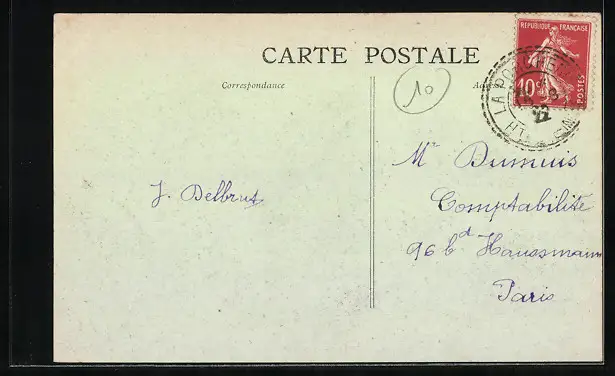 CARTE POSTALE
Correspondance
RÉPUBLIQUE FRANÇAISE
10c
POSTES
10
J. Delbrut
Mr Dumuis
Comptabilité
96 bd Haussmann
Paris